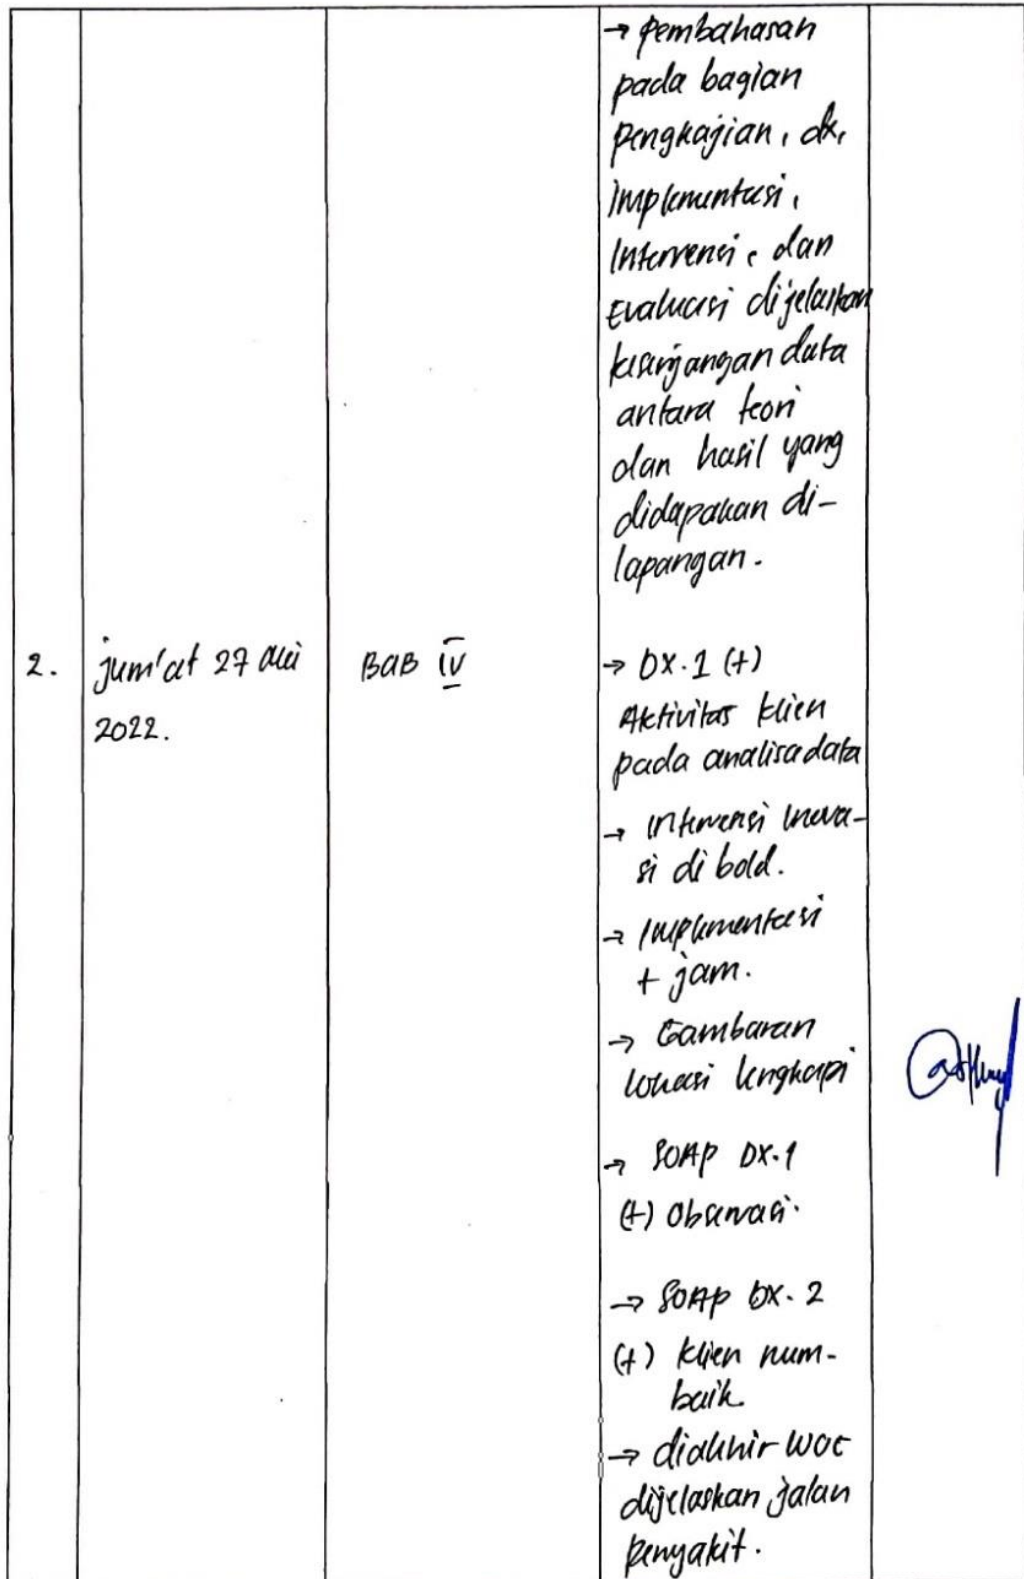 → pembahasan
pada bagian
pengkajian, dx,
implementasi,
Intervensi, dan
Evaluasi dijelaskan
kesenjangan data
antara teori
dan hasil yang
didapakan di-
lapangan.
2. jum'at 27 Mei
2022.
BAB IV
→ DX.1 (+)
Aktivitas klien
pada analisa data
→ Intervensi inova-
si di bold.
→ Implementasi
+ jam.
→ Gambaran
lokasi lengkapi
→ SOAP DX.1
(+) Observasi.
→ SOAP DX.2
(+) klien mem-
baik.
→ diakhir WOC
dijelaskan jalan
penyakit.